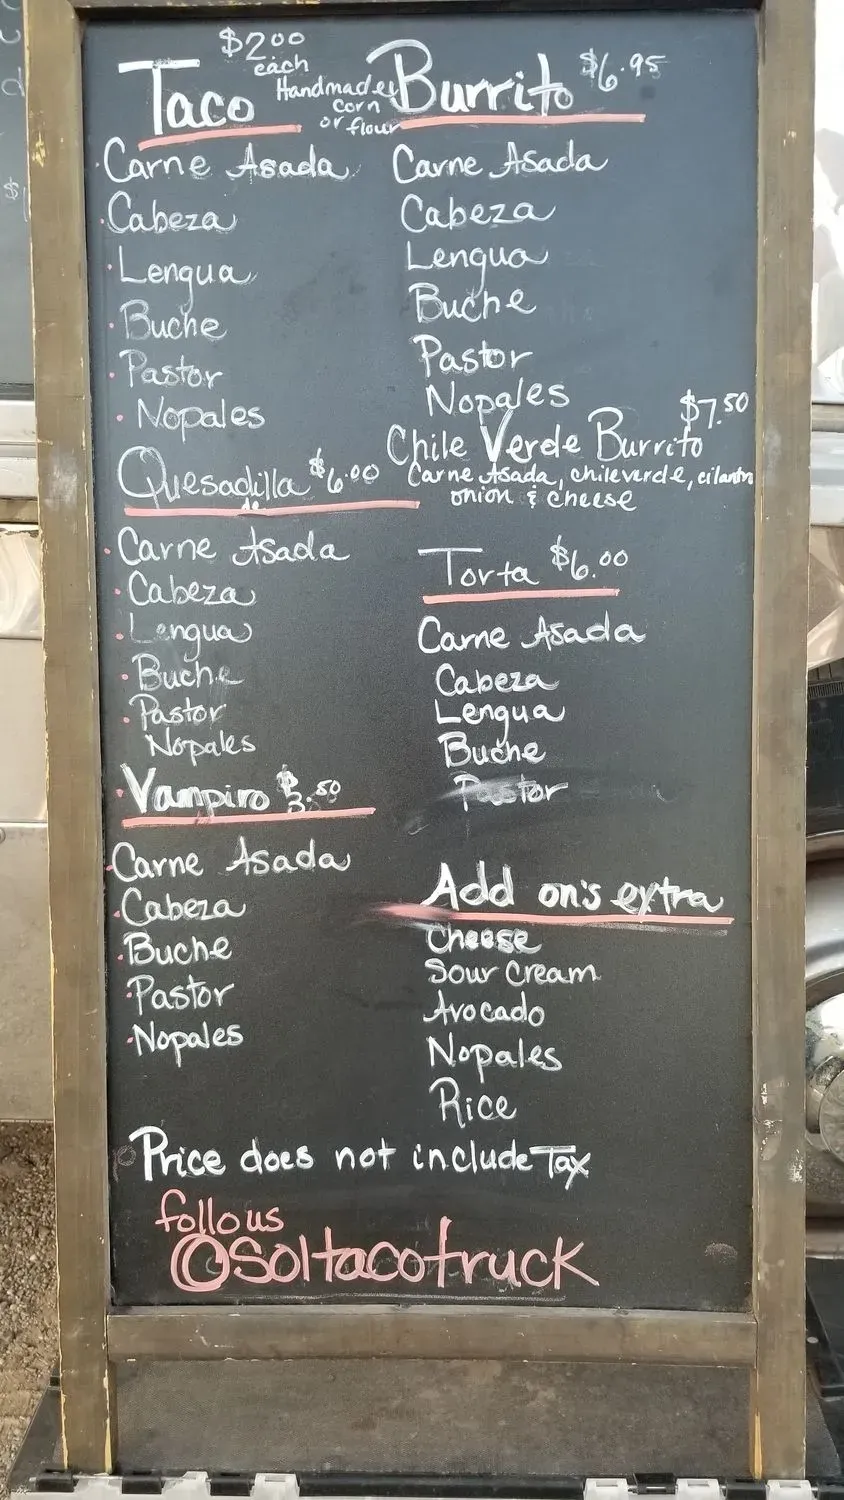 Taco $2.00
each
Handmade
corn
or flour
Carne Asada
Cabeza
Lengua
Buche
Pastor
Nopales
Quesadilla $6.00
de
Carne Asada
Cabeza
Lengua
Buche
Pastor
Nopales
Vampiro $3.50
Carne Asada
Cabeza
Buche
Pastor
Nopales
Burrito $6.95
Carne Asada
Cabeza
Lengua
Buche
Pastor
Nopales
Chile Verde Burrito $7.50
Carne Asada, chile verde, cilantro
onion & cheese
Torta $6.00
Carne Asada
Cabeza
Lengua
Buche
Pastor
Add on's extra
Cheese
Sour Cream
Avocado
Nopales
Rice
Price does not include Tax
follo us
@soltacotruck